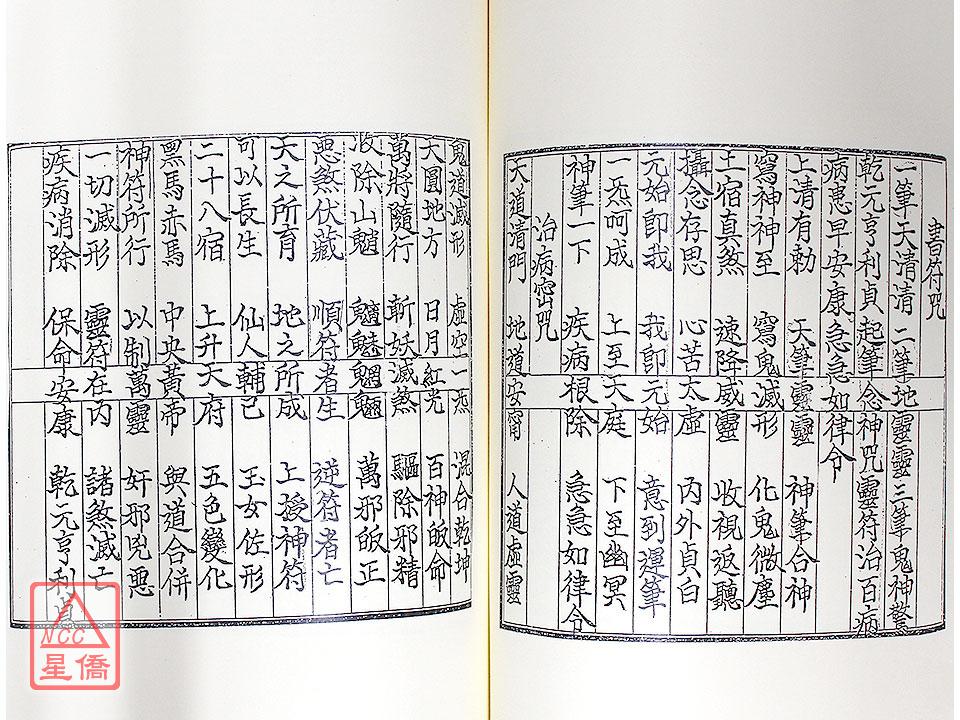 書符咒
一筆天清清 二筆地靈靈 三筆鬼神驚
乾元亨利貞 起筆念神咒 靈符治百病
病患早安康 急急如律令
上清有勅 天筆靈靈 神筆合神
寫神神至 寫鬼滅形 化鬼微塵
土宿真煞 速降威靈 收視返聽
攝念存思 心苦太虛 內外貞白
元始卽我 我卽元始 意到運筆
一炁呵成 上至天庭 下至幽冥
神筆一下 疾病根除 急急如律令
治病密咒
天道清門 地道安甯 人道虛靈
鬼道滅形 虛空一炁 混合乾坤
天圓地方 日月紅光 百神皈命
萬將隨行 斬妖滅煞 驅除邪精
收除山魈 魑魅魍魎 萬邪皈正
惡煞伏藏 順符者生 逆符者亡
天之所育 地之所成 上授神符
可以長生 仙人輔己 玉女佐形
二十八宿 上升天府 五色變化
黑馬赤馬 中央黃帝 與道合併
神符所行 以制萬靈 奸邪兇惡
一切滅形 靈符在內 諸煞滅亡
疾病消除 保命安康 乾元亨利貞
NCC
星僑